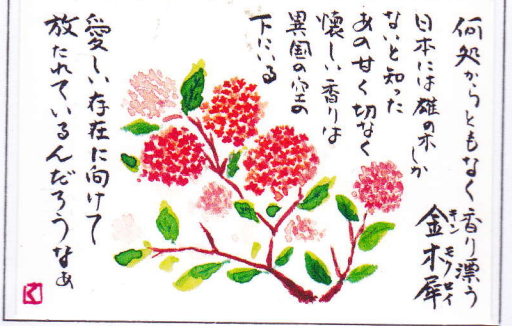 何処からともなく香り漂う
金木犀
キン モクセイ
日本には雄の木しか
ないと知った
あの甘く切なく
懐しい香りは
異国の空の
下にいる
愛しい存在に向けて
放たれているんだろうなぁ